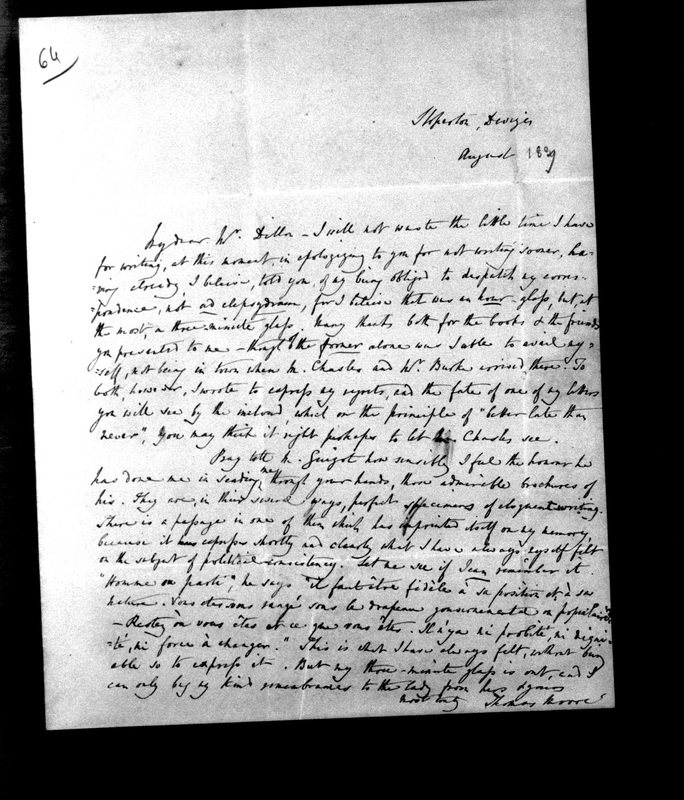 64
Sloperton, Devizes
August 1839
My dear Mr. Dillon - I will not waste the little time I have
for writing, at this moment in apologizing to you for not writing sooner, ha-
=ving already, I believe, told you of my being obliged to despatch my corres-
=pondence, not ad clepsydram, for I believe that was an hour-glass, but, at
the most, a three-minute glass. Many thanks both for the books & the friends
you presented to me - though of the former alone was I able to avail my=
=self, not being in town when M. Chasles and Mr. Burke arrived there. To
both, however, I wrote to express my regrets, and the fate of one of my letters
you will see by the inclosed, which on the principle of "better late than
never", you may think it right perhaps to let M. Chasles see.
Pray tell M. Guizot how sensibly I feel the honour he
has done me in sending me, through your hands, those admirable brochures of
his. They are, in their several ways, perfect specimens of eloquent writing.
There is a passage in one of them which has imprinted itself on my memory,
because it expresses shortly and clearly what I have always myself felt
on the subject of political consistency. Let me see if I can remember it.
"Homme on parle", he says "il faut être fidèle à sa position et à sa
nature. Vous êtes-vous rangé sous le drapeau gouvernemental ou populaire?
- Restez où vous êtes et ce que vous êtes. Il n'y a ni probité, ni digni-
=té, ni force à changer." This is what I have always felt, without being
able so to express it. But my three-minute glass is out, and I
can only beg my kind remembrances to the lady from hers & yours
most truly Thomas Moore